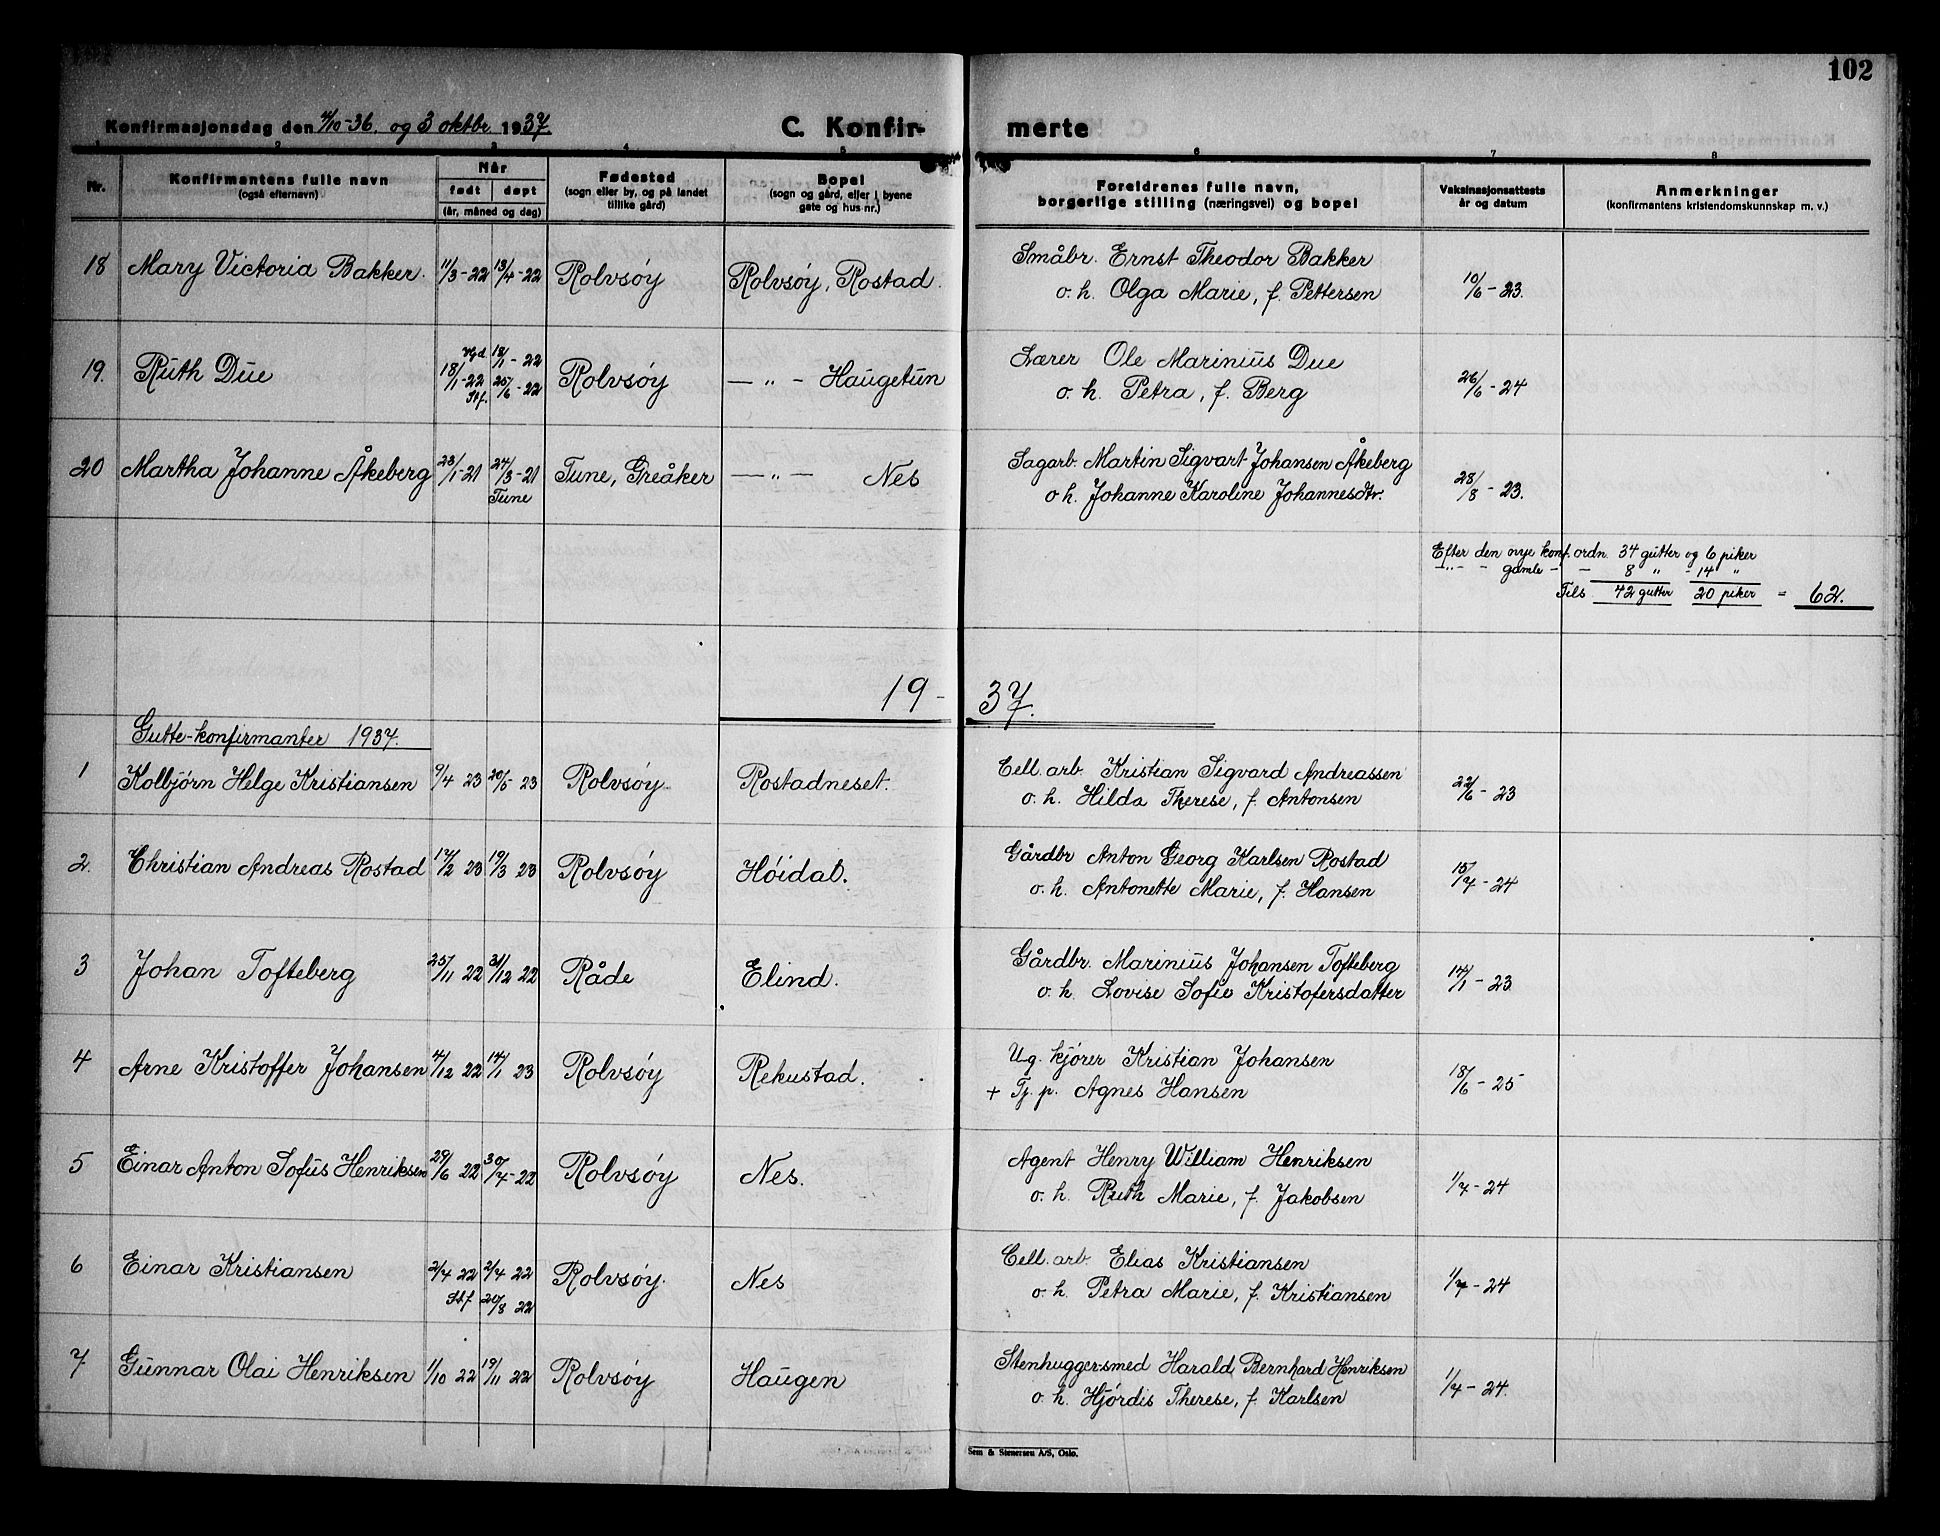 102
Konfirmasjonsdag den 4/10-36. og 3 oktbr. 1937 C. Konfir- merte
1 2 3 4 5 6 7 8
Nr. Konfirmantens fulle navn (også efternavn) Når født døpt (år, måned og dag) Fødested (sogn eller by, og på landet tillike gård) Bopel (sogn og gård, eller i byene gate og hus nr.) Foreldrenes fulle navn, borgerlige stilling (næringsvei) og bopel Vaksinasjonsattests år og datum Anmerkninger (konfirmantens kristendomskunnskap m. v.)
18 Mary Victoria Bakker. 11/3-22 13/4-22 Rolvsøy Rolvsøy, Rostad. Småbr. Ernst Theodor Bakker
o. h. Olga Marie, f. Pettersen 10/6-23.
19. Ruth Due 18/1-22 Vgd. 18/1-22 Rolvsøy —"— Haugetun Lærer Ole Marinius Due
Stf. 25/6-22 o. h. Petra, f. Berg 26/6-24
20 Martha Johanne Åkeberg 23/1-21 24/3-21 Tune, Greåker —"— Nes Sagarb. Martin Sigvart Johansen Åkeberg
Tune o. h. Johanne Karoline Johannesdtr. 28/8-23.
Efter den nye konf. ordn. 34 gutter og 6 piker
—"— - gamle - - 8 " - 14 "
Tils 42 gutter 20 piker = 62.
19-37.
Gutte-konfirmanter 1937.
1 Kolbjørn Helge Kristiansen 9/4 23 20/5 23 Rolvsøy. Rostadneset. Cell. arb. Kristian Sigvard Andreassen
o. h. Hilda Therese, f. Antonsen 22/6-23
2. Christian Andreas Rostad 17/2 23 19/3 23 Rolvsøy Høidal. Gårdbr Anton Georg Karlsen Rostad
o. h. Antonette Marie, f. Hansen 15/7-24
3 Johan Tofteberg 25/11 22 31/12 22 Råde Elind. Gårdbr. Marinius Johansen Tofteberg
o. h. Lovise Sofie Kristofersdatter 14/1-23
4 Arne Kristoffer Johansen 4/12 22 14/1 23 Rolvsøy Rekustad. Ug. kjører Kristian Johansen
+ Tj. p. Agnes Hansen 18/6-25
5 Einar Anton Sofus Henriksen 29/6 22 30/7-22 Rolvsøy Nes. Agent Henry William Henriksen
o. h. Ruth Marie, f. Jakobsen 1/7-24
6 Einar Kristiansen 2/7 22 2/7 22 Rolvsøy. Nes Cell. arb. Elias Kristiansen
Stf 20/8 22 o. h. Petra Marie, f. Kristiansen 1/7-24
7 Gunnar Olai Henriksen 1/10 22 19/11 22 Rolvsøy Haugen Stenhuggersmed Harald Bernhard Henriksen
o. h. Hjørdis Therese, f. Karlsen 1/7-24.
Sem & Stenersen A/S, Oslo.